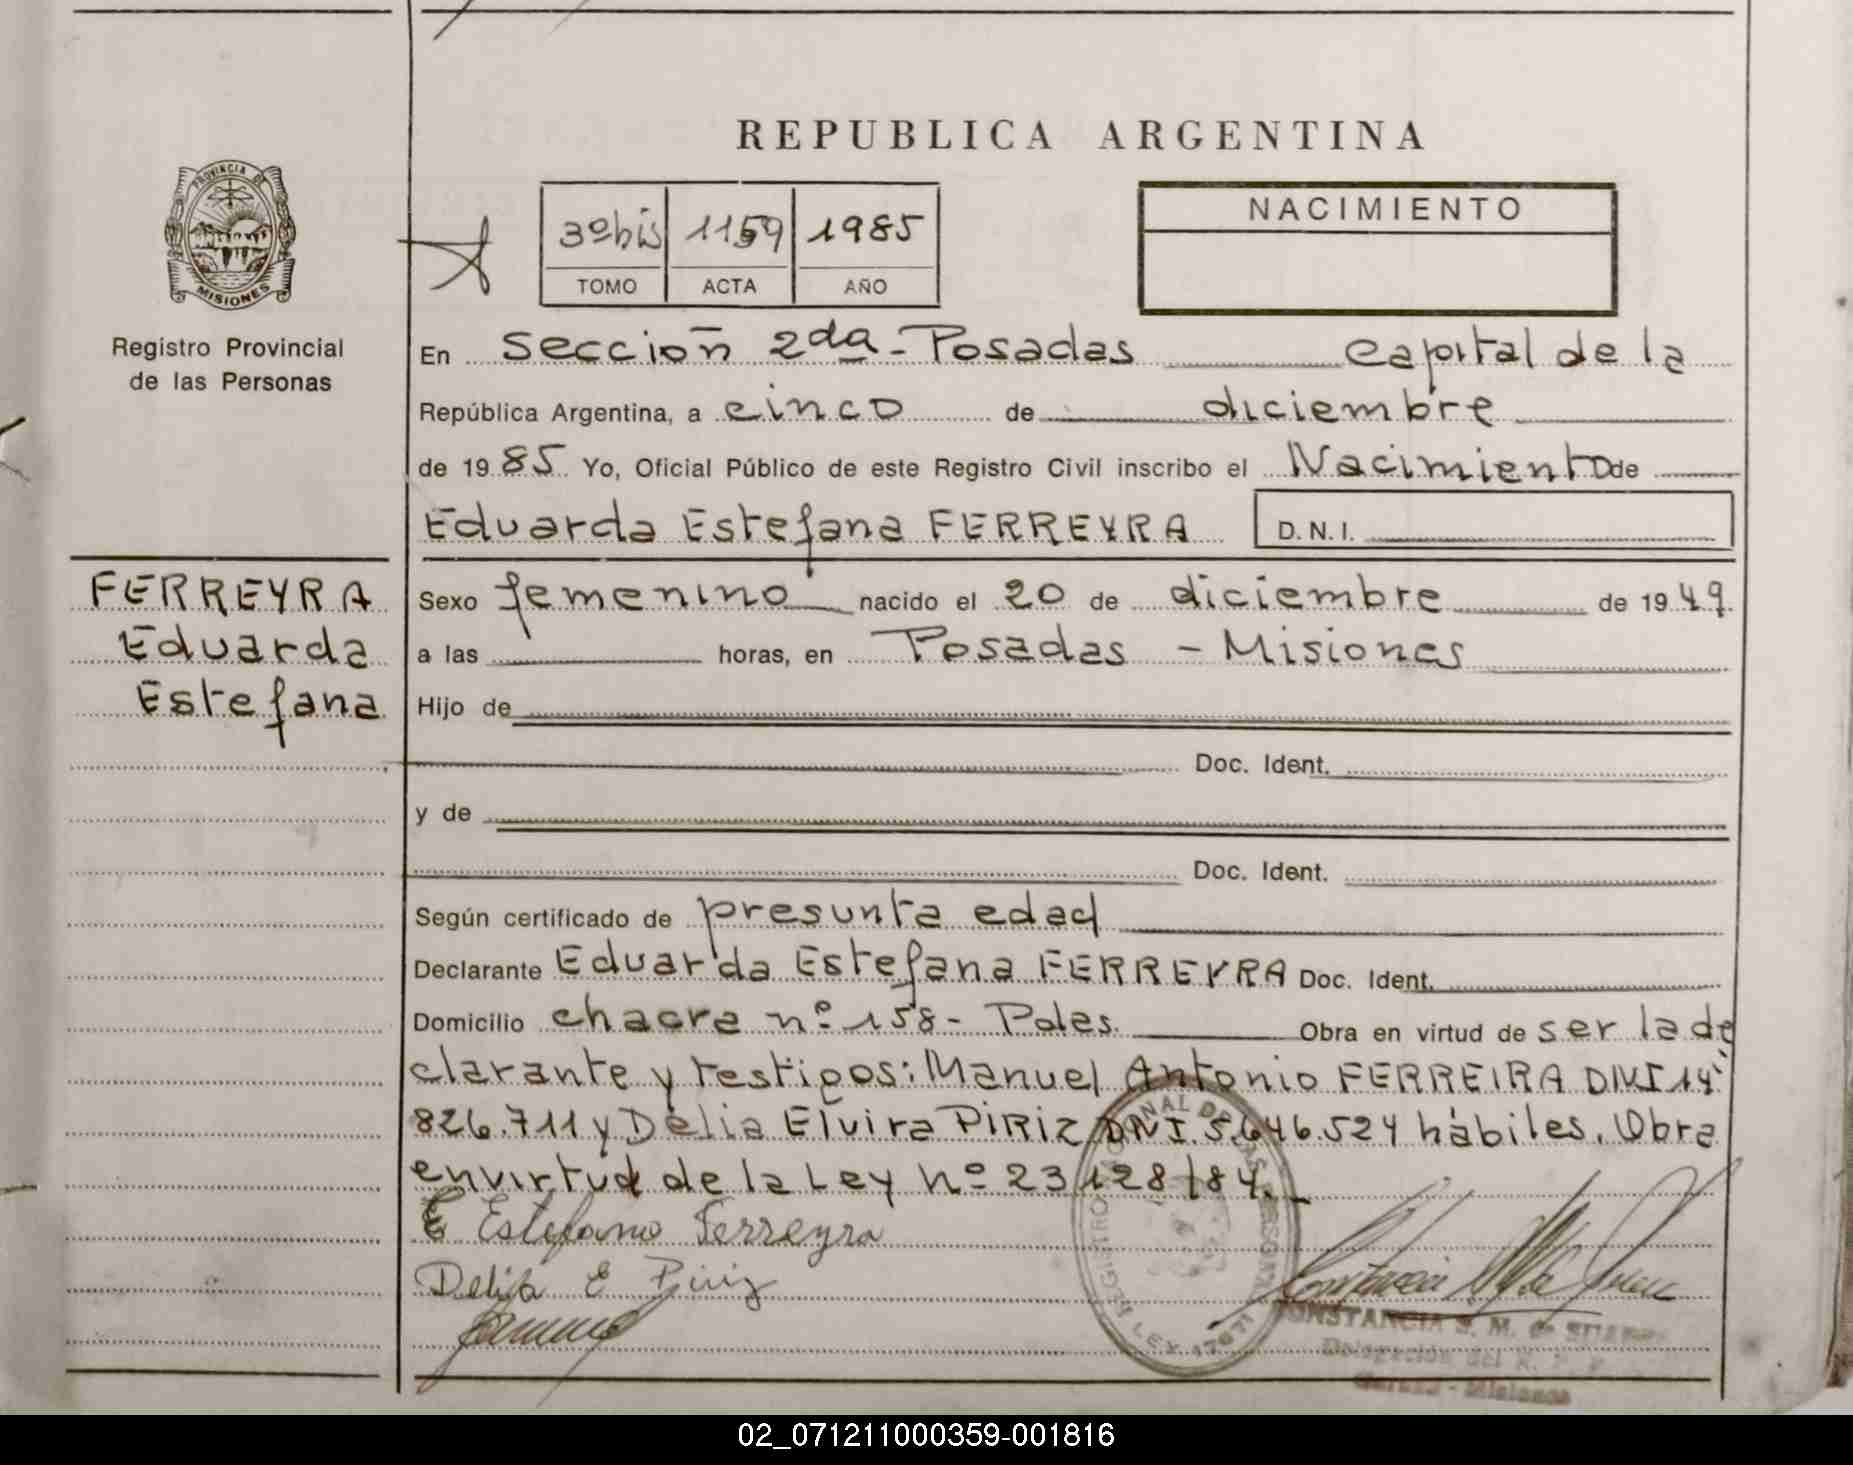 REPUBLICA ARGENTINA
PROVINCIA DE
MISIONES
Registro Provincial
de las Personas
3º bis 1159 1985
TOMO ACTA AÑO
NACIMIENTO
En Sección 2da - Posadas capital de la
República Argentina, a cinco de diciembre
de 1985 Yo, Oficial Público de este Registro Civil inscribo el Nacimiento de
Eduarda Estefana FERREYRA D.N.I.
FERREYRA
Eduarda
Estefana
Sexo femenino nacido el 20 de diciembre de 1949
a las horas, en Posadas - Misiones
Hijo de
Doc. Ident.
y de
Doc. Ident.
Según certificado de presunta edad
Declarante Eduarda Estefana FERREYRA Doc. Ident.
Domicilio chacra nº 158 - Pdas. Obra en virtud de ser la de
clarante y testigos: Manuel Antonio FERREIRA DNI 14.
826.711 y Delia Elvira PIRIZ DNI. 5.646.524 hábiles. Obra
en virtud de la Ley nº 23.128/84.
E Estefana Ferreyra
Delia E Piriz
CONSTANCIA S. M. de
Delegación del R.
Misiones
LEY 17671
02_071211000359-001816